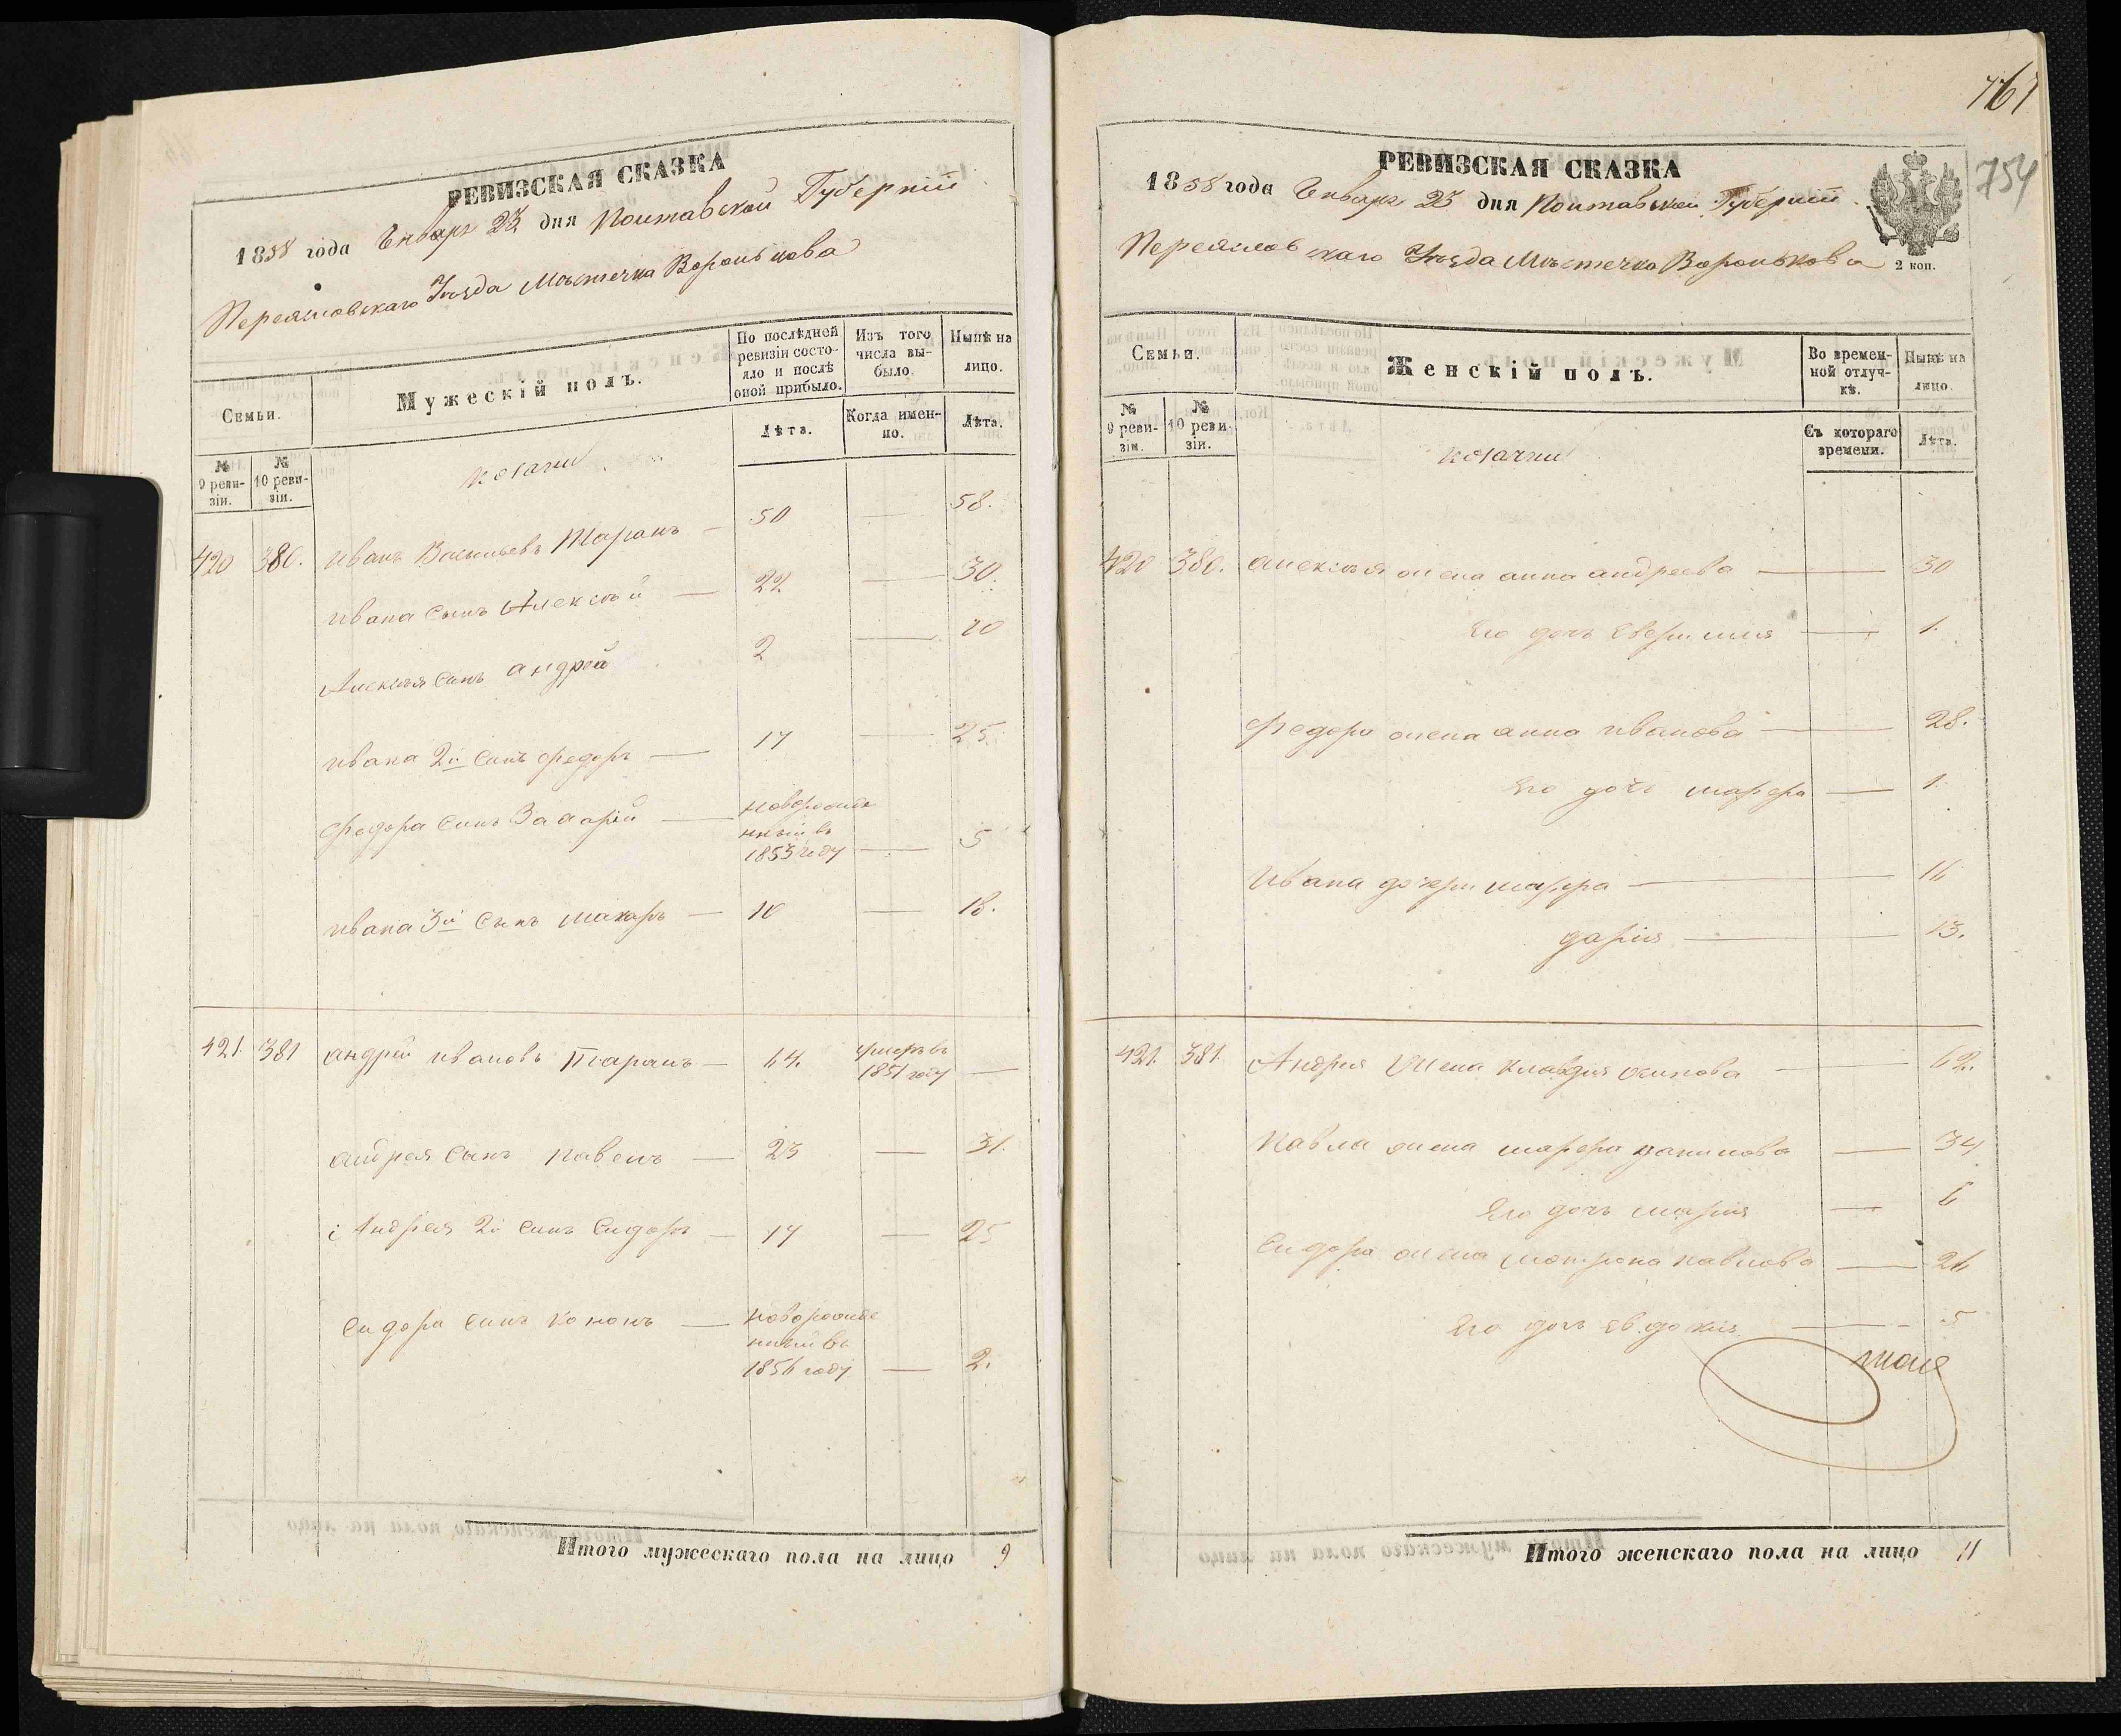 РЕВИЗСКАЯ СКАЗКА
1858 года Генваря 23 дня Полтавской Губерніи
Переяловскаго Уѣзда Мѣстечка Воронькова
Семьи.
Мужескій полъ.
По послѣдней ревизіи состояло и послѣ оной прибыло.
Изъ того числа выбыло.
Нынѣ на лицо.
№ 9 ревизіи.
№ 10 ревизіи.
Лѣта.
Когда именно.
Лѣта.
козаки
420 380. Иванъ Васильевъ Таранъ — 50 — 58.
Ивана сынъ Алексѣй — 22 — 30.
Алексѣя синъ Андрей 2 — 10
Ивана 2й синъ Федоръ — 17 — 25.
Федора синъ Захарій — новорожде
нный въ
1853 году — 5
Ивана 3й сынъ Макаръ — 10 — 18.
421. 381 Андрей Ивановъ Таранъ — 64. умеръ въ
1851 году —
Андрея сынъ Павелъ — 23 — 31.
Андрея 2й синъ Сидоръ — 17 — 25
Сидора синъ Кононъ — новорожде
нный въ
1856 году — 2.
Итого мужескаго пола на лицо 9
767
754
РЕВИЗСКАЯ СКАЗКА
1858 года Генваря 23 дня Полтавской Губерніи
Переяловскаго Уѣзда Мѣстечка Воронькова
2 коп.
Семьи.
Женскій полъ.
Во временной отлучкѣ.
Нынѣ на лицо.
№ 9 ревизіи.
№ 10 ревизіи.
Съ котораго времени.
Лѣта.
козачки
420 380. Алексѣя жена Анна Андреева — 30
Его дочь — 1.
Федора жена Анна Иванова — 28.
Его дочь Марфа — 1.
Ивана дочери Марфа — 16
Дарія — 13.
421. 381. Андрея жена Клавдія Осипова — 62.
Павла жена Марфа — 34
Его дочь Марія — 6
Сидора жена Мотрона Павлова — 26
Его дочь Евдокія — 5
Итого женскаго пола на лицо 11